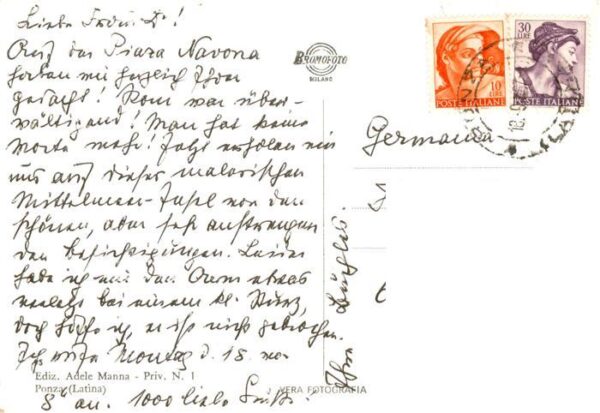 Liebe Frau D!
Auf der Piazza Navona
haben wir herzlich Ihrer
gedacht! Rom war über-
wältigend! Man hat keine
Worte mehr! Jetzt erholen wir
uns auf dieser malerischen
Mittelmeer-Insel von den
schönen, aber sehr anstrengen
den Besichtigungen. Leider
habe ich mir den Arm etwas
verletzt bei einem kl. Sturz,
doch hoffe ich, er ist nicht gebrochen.
Ich rufe Montag d. 18.
an. 1000 liebe Grüße!
Ihre
BROMOFOTO
MILANO
10
LIRE
POSTE ITALIANE
30
LIRE
POSTE ITALIANE
Germania
Ediz. Adele Manna - Priv. N. 1
Ponza (Latina)
VERA FOTOGRAFIA